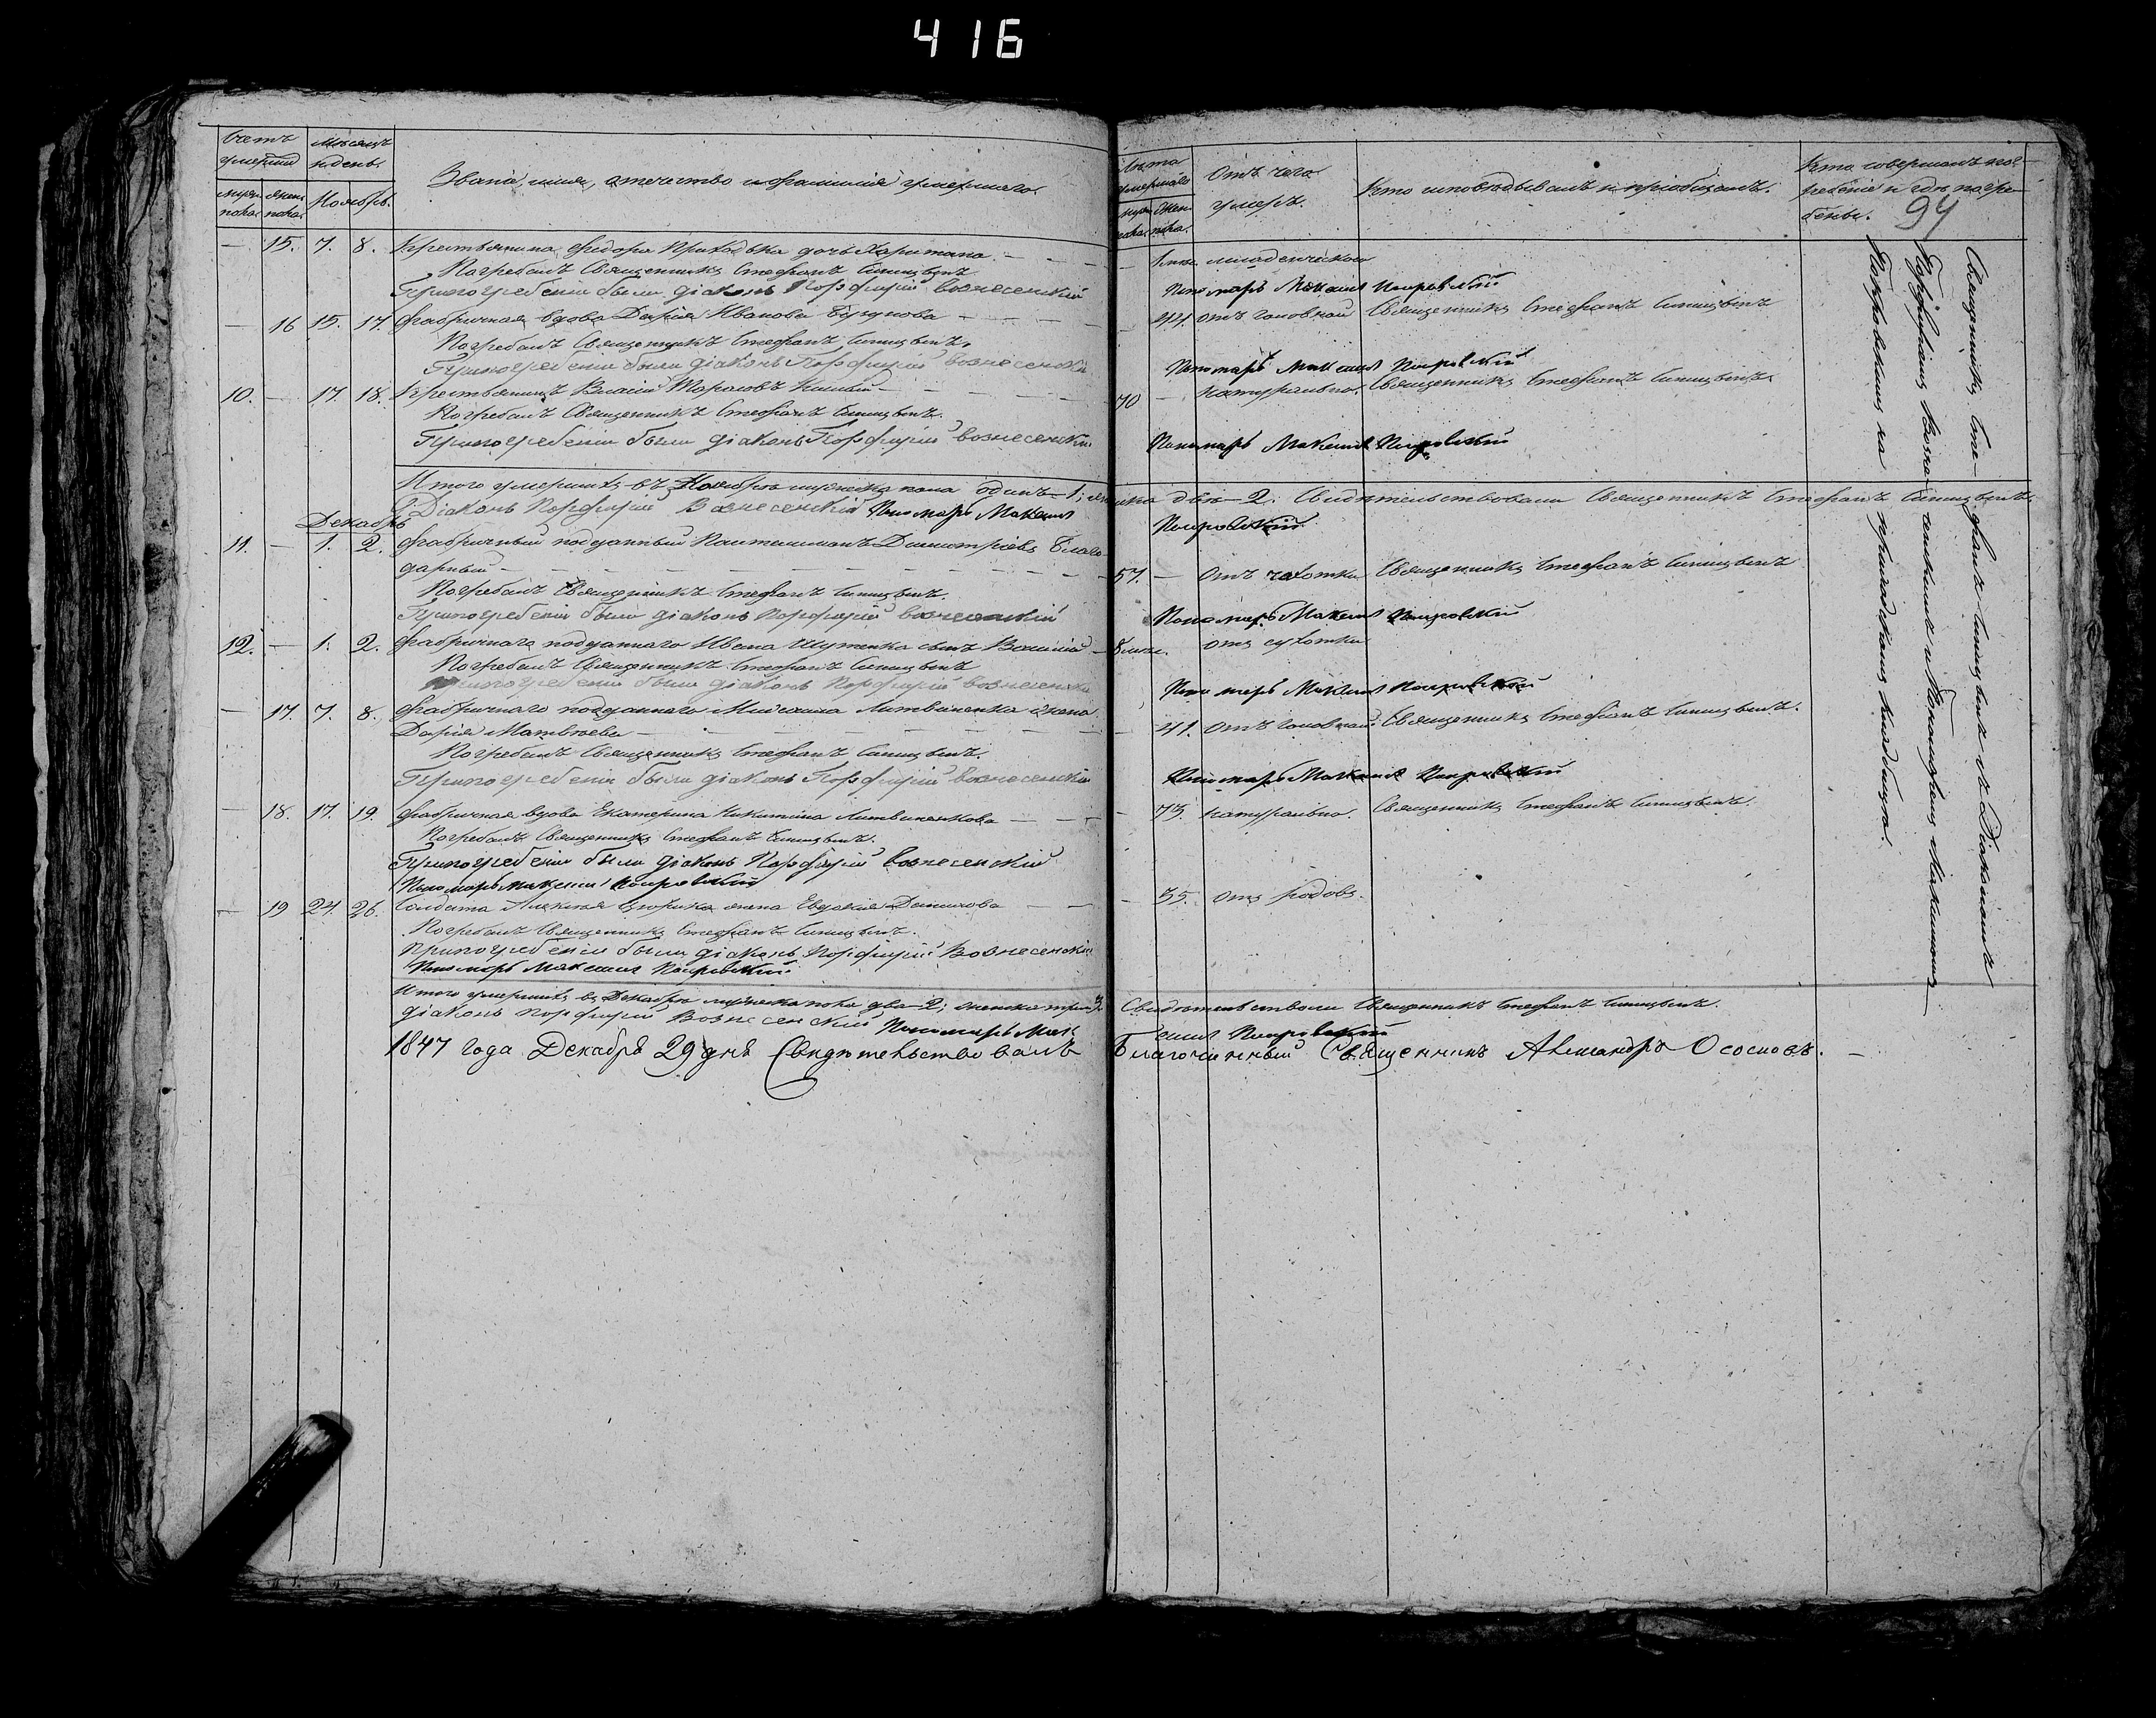 416
Счетъ умершихъ
Мѣсяцъ и день.
Званіе, имя, отечество и фамилія умершаго.
мужеска пола женска пола
Ноябрь.
Лѣта умершаго
Отъ чего умеръ.
Кто исповѣдывалъ и пріобщалъ.
Кто совершалъ погребеніе и гдѣ погребены.
94
— 15. 7. 8. Крестьянина Ѳедора Приходька дочь Харитина — 1 мѣс. младенческою
Погребалъ Священникъ Стефанъ
При погребеніи были діаконъ Порфирій Вознесенскій Пономарь Максимъ Покровскій
— 16 15. 17. Фабричная вдова Дарія Иванова — 44. отъ головной Священникъ Стефанъ
Погребалъ Священникъ Стефанъ
При погребеніи были діаконъ Порфирій Вознесенскій Пономарь Максимъ Покровскій
10. — 17. 18. Крестьянинъ Власій Тарасовъ — 70 — натурально. Священникъ Стефанъ
Погребалъ Священникъ Стефанъ
При погребеніи были діаконъ Порфирій Вознесенскій Пономарь Максимъ Покровскій
Итого умершихъ въ Ноябрѣ мужеска пола одинъ 1; женска двѣ 2. Свидѣтельствовали Священникъ Стефанъ
Діаконъ Порфирій Вознесенскій Пономарь Максимъ Покровскій
Декабрь
11. — 1. 2. Фабричный подданный Пантелимонъ Димитріевъ Благо-
дарный — 57. — Отъ чахотки Священникъ Стефанъ
Погребалъ Священникъ Стефанъ
При погребеніи были діаконъ Порфирій Вознесенскій Пономарь Максимъ Покровскій
12. — 1. 2. Фабричнаго подданнаго Ивана Шутенка сынъ Василій — 8 мѣс. отъ сухотки
Погребалъ Священникъ Стефанъ
При погребеніи были діаконъ Порфирій Вознесенскій Пономарь Максимъ Покровскій
— 17. 7. 8. Фабричнаго подданнаго Михаила Литвиненка жена
Дарія Матвѣева — 41. Отъ головной. Священникъ Стефанъ
Погребалъ Священникъ Стефанъ
При погребеніи были діаконъ Порфирій Вознесенскій Пономарь Максимъ Покровскій
— 18. 17. 19. Фабричная вдова Екатерина Никитина Литвиненкова — 73. натурально. Священникъ Стефанъ
Погребалъ Священникъ Стефанъ
При погребеніи были діаконъ Порфирій Вознесенскій
Пономарь Максимъ Покровскій
— 19 24. 26. Солдата Алексѣя жена Евдокія Данилова — 35. отъ родовъ.
Погребалъ Священникъ Стефанъ
При погребеніи были діаконъ Порфирій Вознесенскій
Пономарь Максимъ Покровскій
Итого умершихъ въ Декабрѣ мужеска пола два 2; женска три 3. Свидѣтельствовали Священникъ Стефанъ
діаконъ Порфирій Вознесенскій Пономарь Максимъ Покровскій
1847 года Декабря 29 дня Свидѣтельствовалъ Благочинный Священникъ Александръ Ососковъ. —
Священникъ Стефанъ съ Діакономъ
Порфиріемъ Вознесенскимъ и Пономаремъ Максимомъ
Покровскимъ на приходскомъ кладбищѣ.